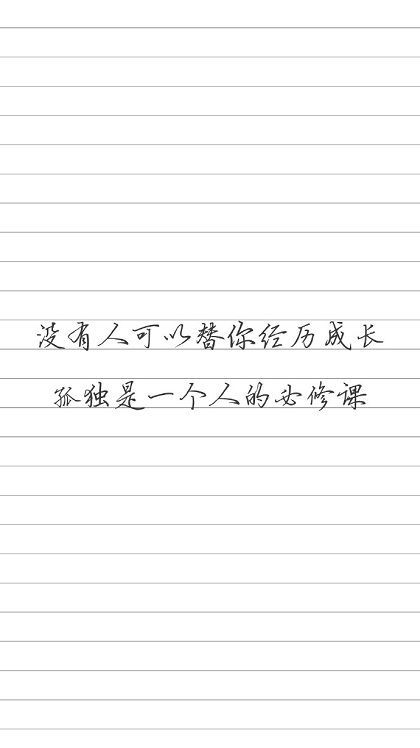 没有人可以替你经历成长
孤独是一个人的必修课